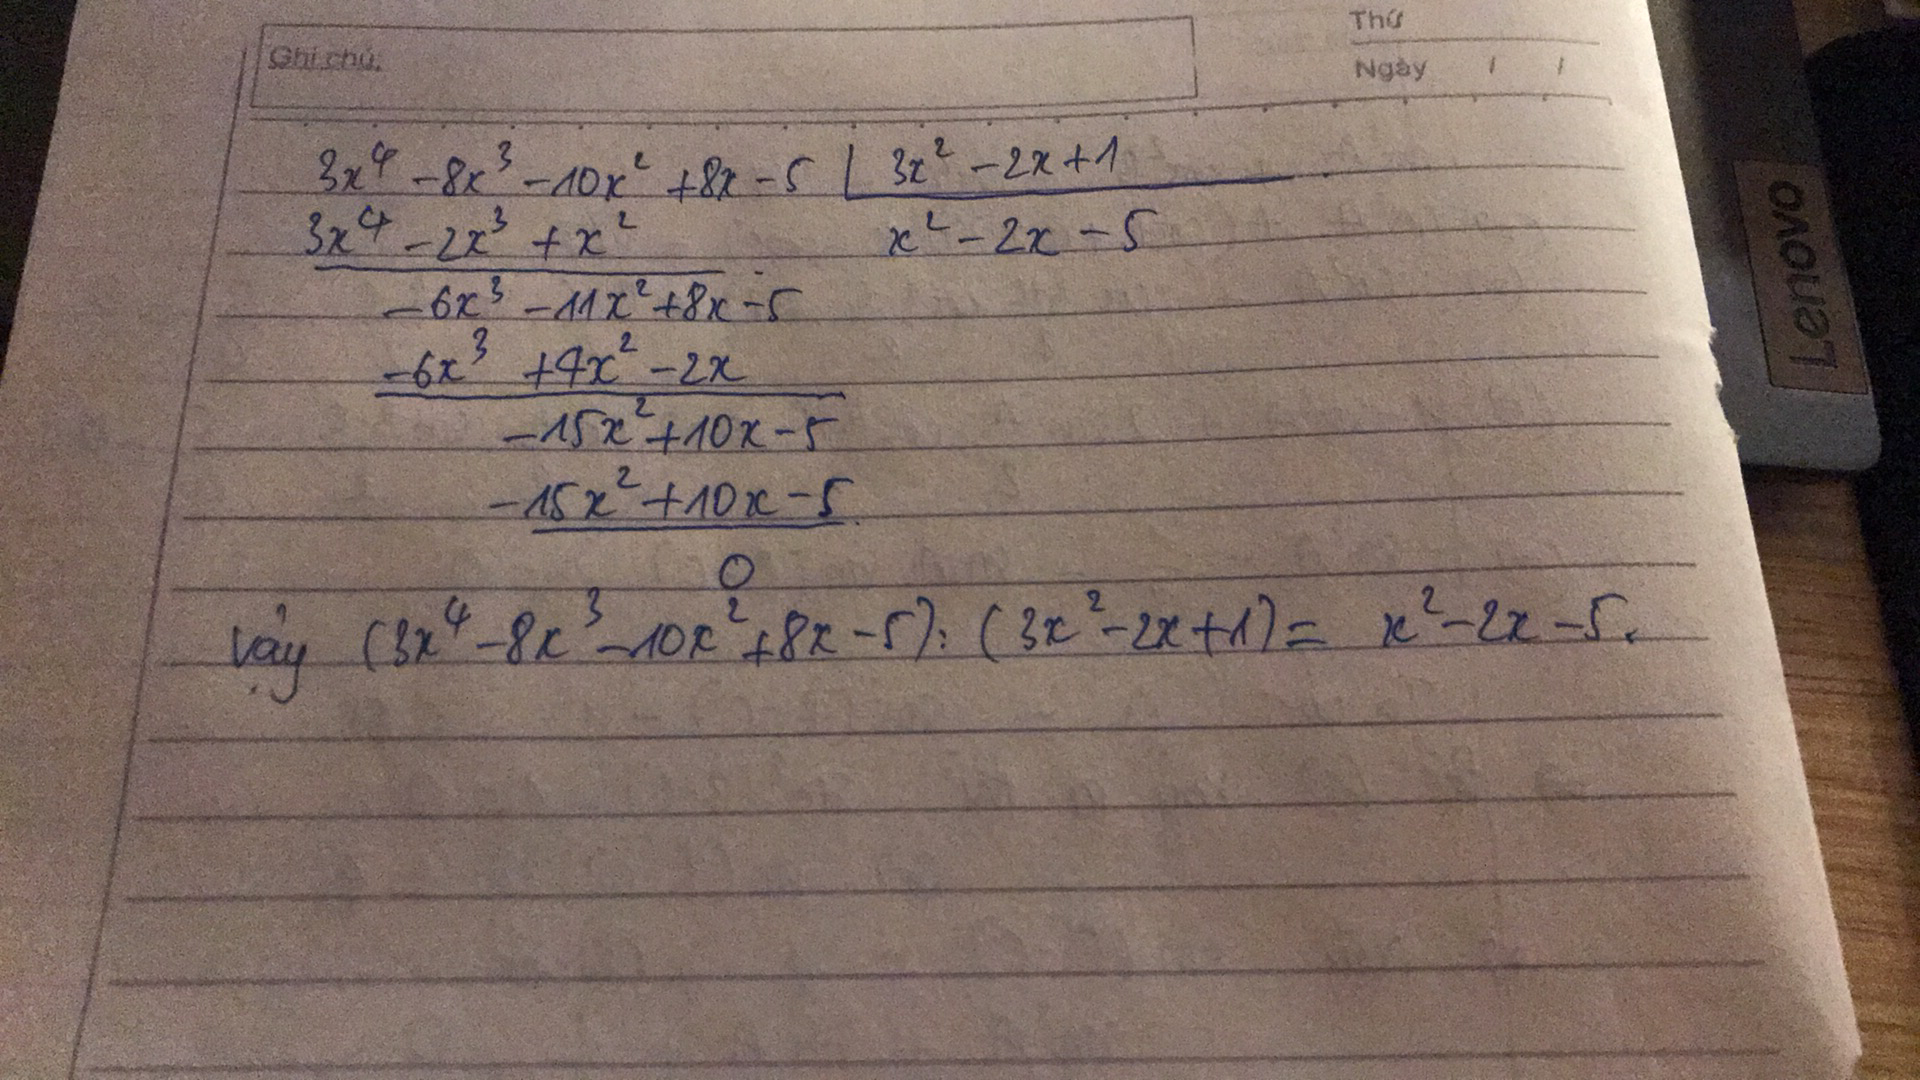 Thứ
Ghi chú:
Ngày / /
3x⁴ - 8x³ - 10x² + 8x - 5 | 3x² - 2x + 1
3x⁴ - 2x³ + x² x² - 2x - 5
- 6x³ - 11x² + 8x - 5
- 6x³ + 4x² - 2x
- 15x² + 10x - 5
- 15x² + 10x - 5
0
Vậy (3x⁴ - 8x³ - 10x² + 8x - 5) : (3x² - 2x + 1) = x² - 2x - 5.
Lenovo